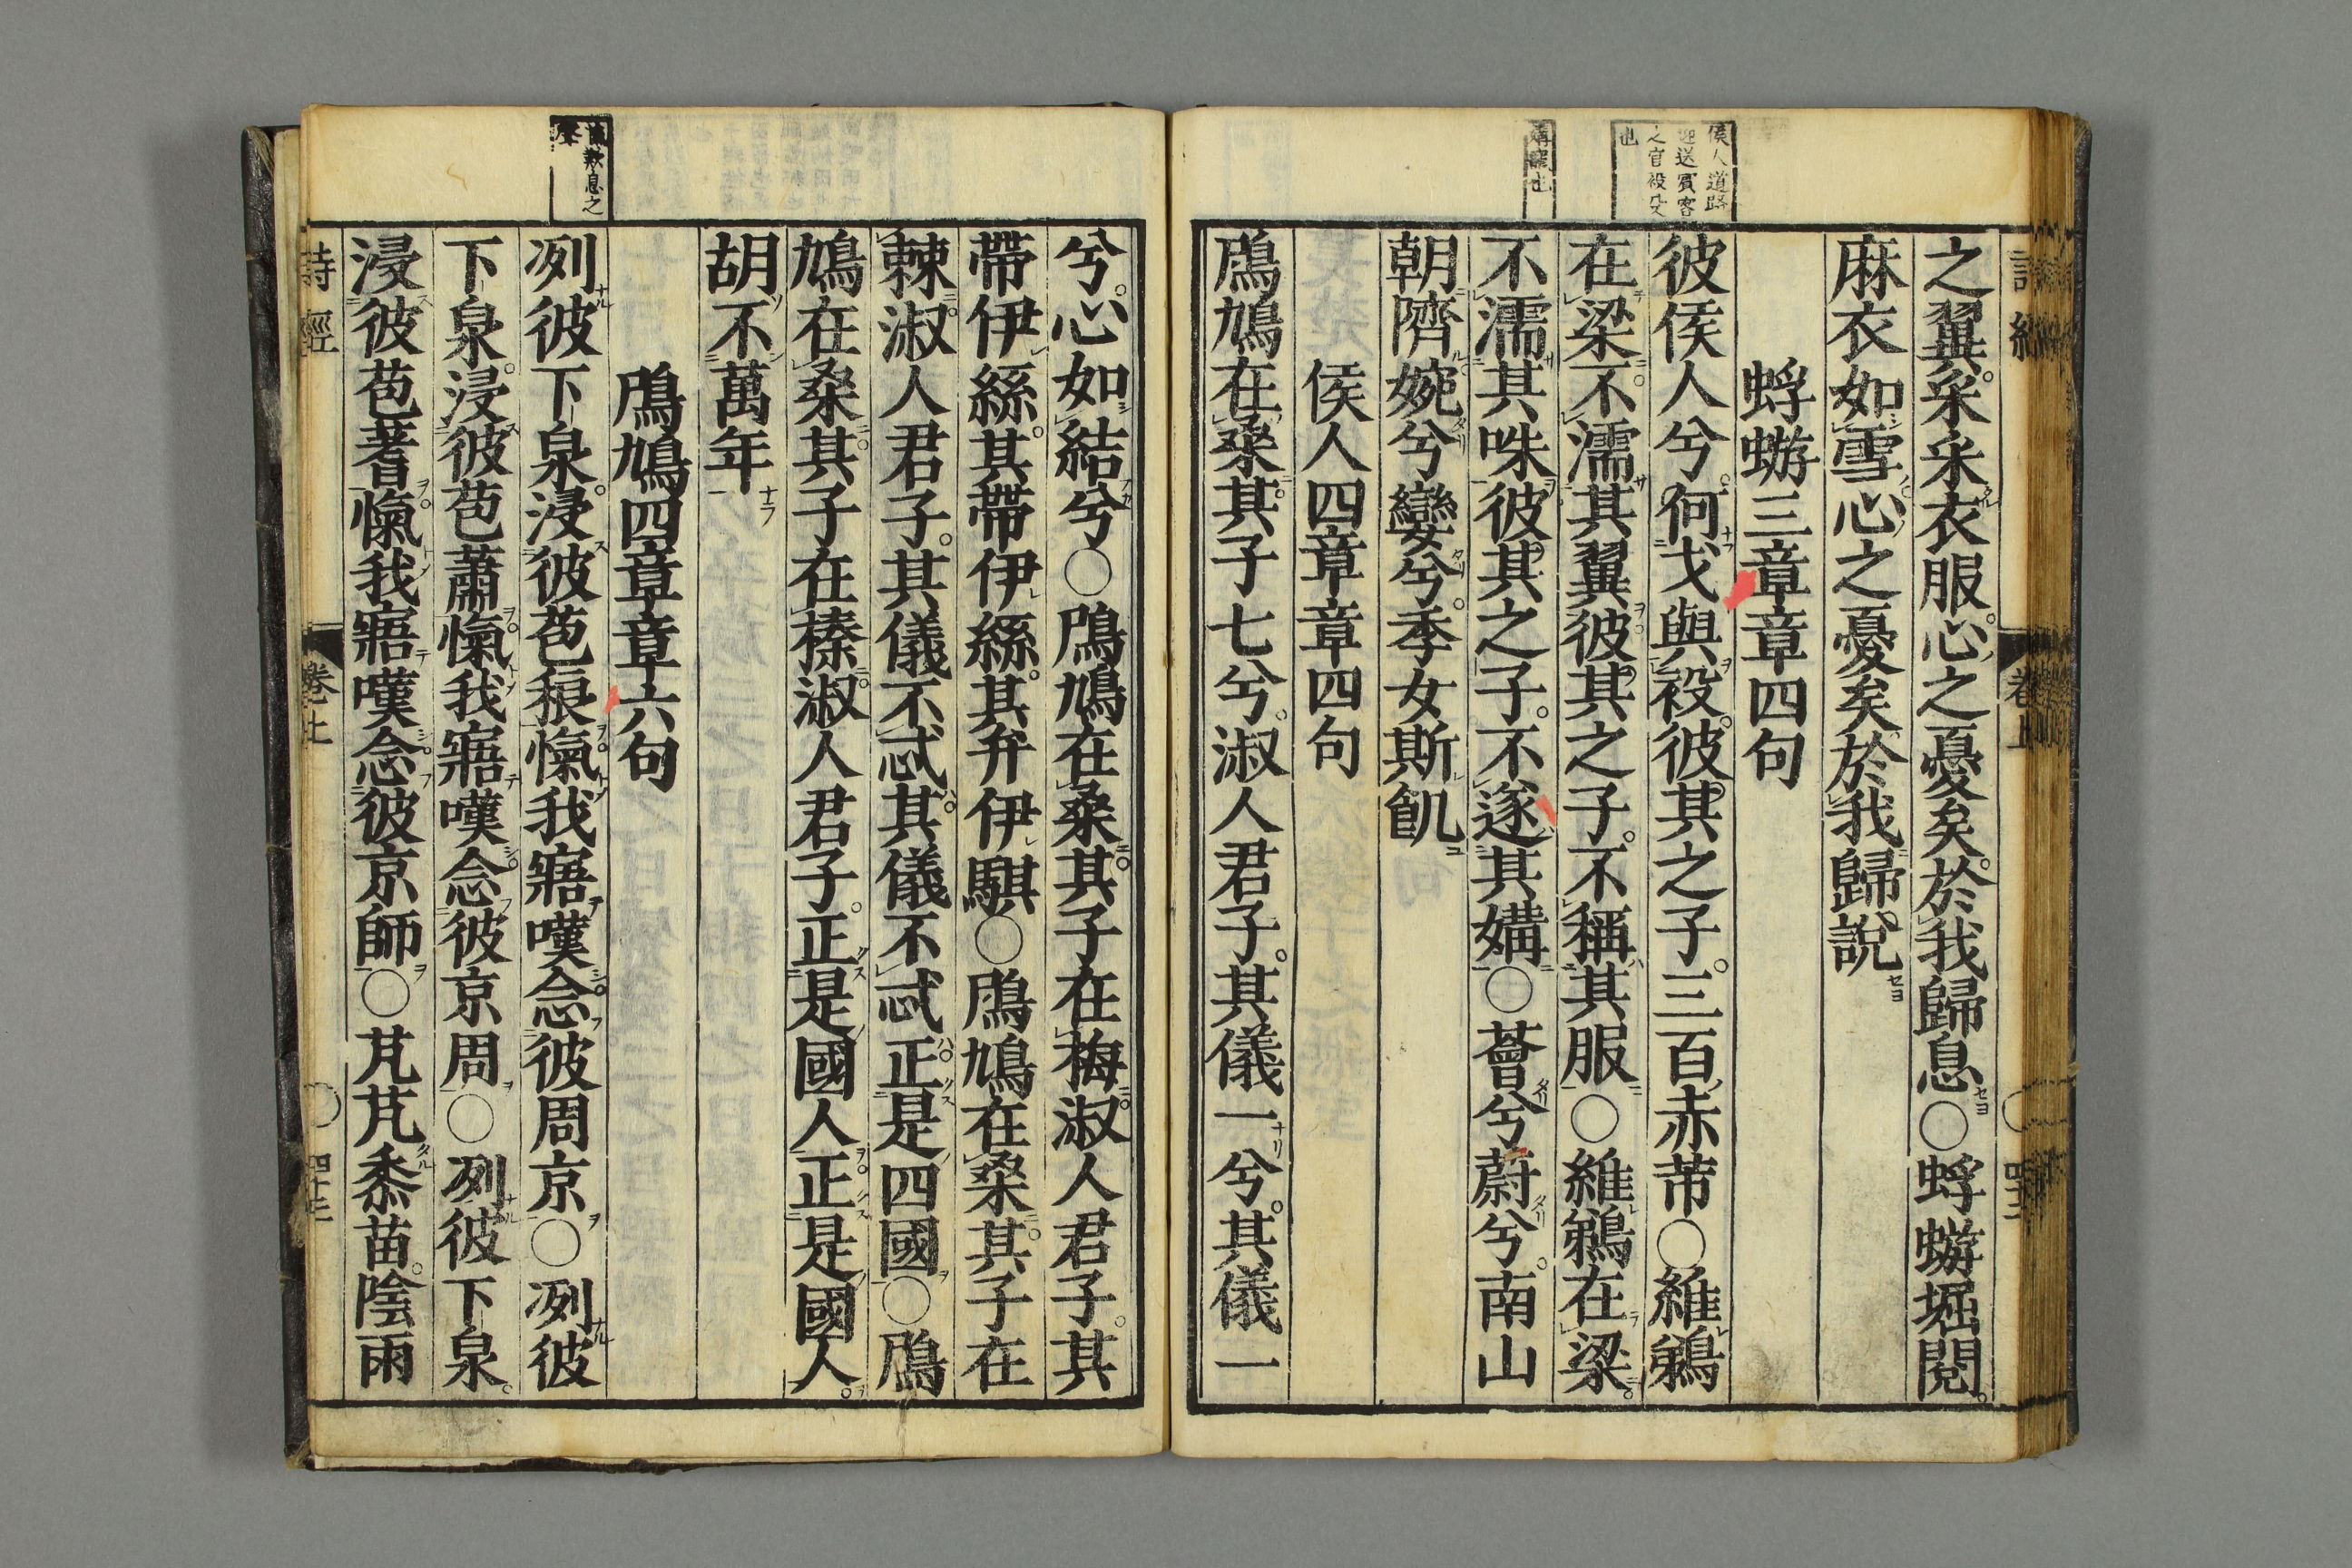 侯人道路
迎送賓客
之官役殳
也
媾寵也
之翼采采衣服心之憂矣於我歸息○蜉蝣堀閱
麻衣如雪心之憂矣於我歸說
蜉蝣三章章四句
彼侯人兮何戈與祋彼其之子三百赤芾○維鵜
在梁不濡其翼彼其之子不稱其服○維鵜在梁
不濡其咮彼其之子不遂其媾○薈兮蔚兮南山
朝隮婉兮孌兮季女斯飢
侯人四章章四句
鳲鳩在桑其子七兮淑人君子其儀一兮其儀一
愾歎息之
聲
兮心如結兮○鳲鳩在桑其子在梅淑人君子其
帶伊絲其帶伊絲其弁伊騏○鳲鳩在桑其子在
棘淑人君子其儀不忒其儀不忒正是四國○鳲
鳩在桑其子在榛淑人君子正是國人正是國人
胡不萬年
鳲鳩四章章六句
冽彼下泉浸彼苞稂愾我寤嘆念彼周京○冽彼
下泉浸彼苞蕭愾我寤嘆念彼京周○冽彼下泉
浸彼苞蓍愾我寤嘆念彼京師○芃芃黍苗陰雨
詩經
卷上
四十三